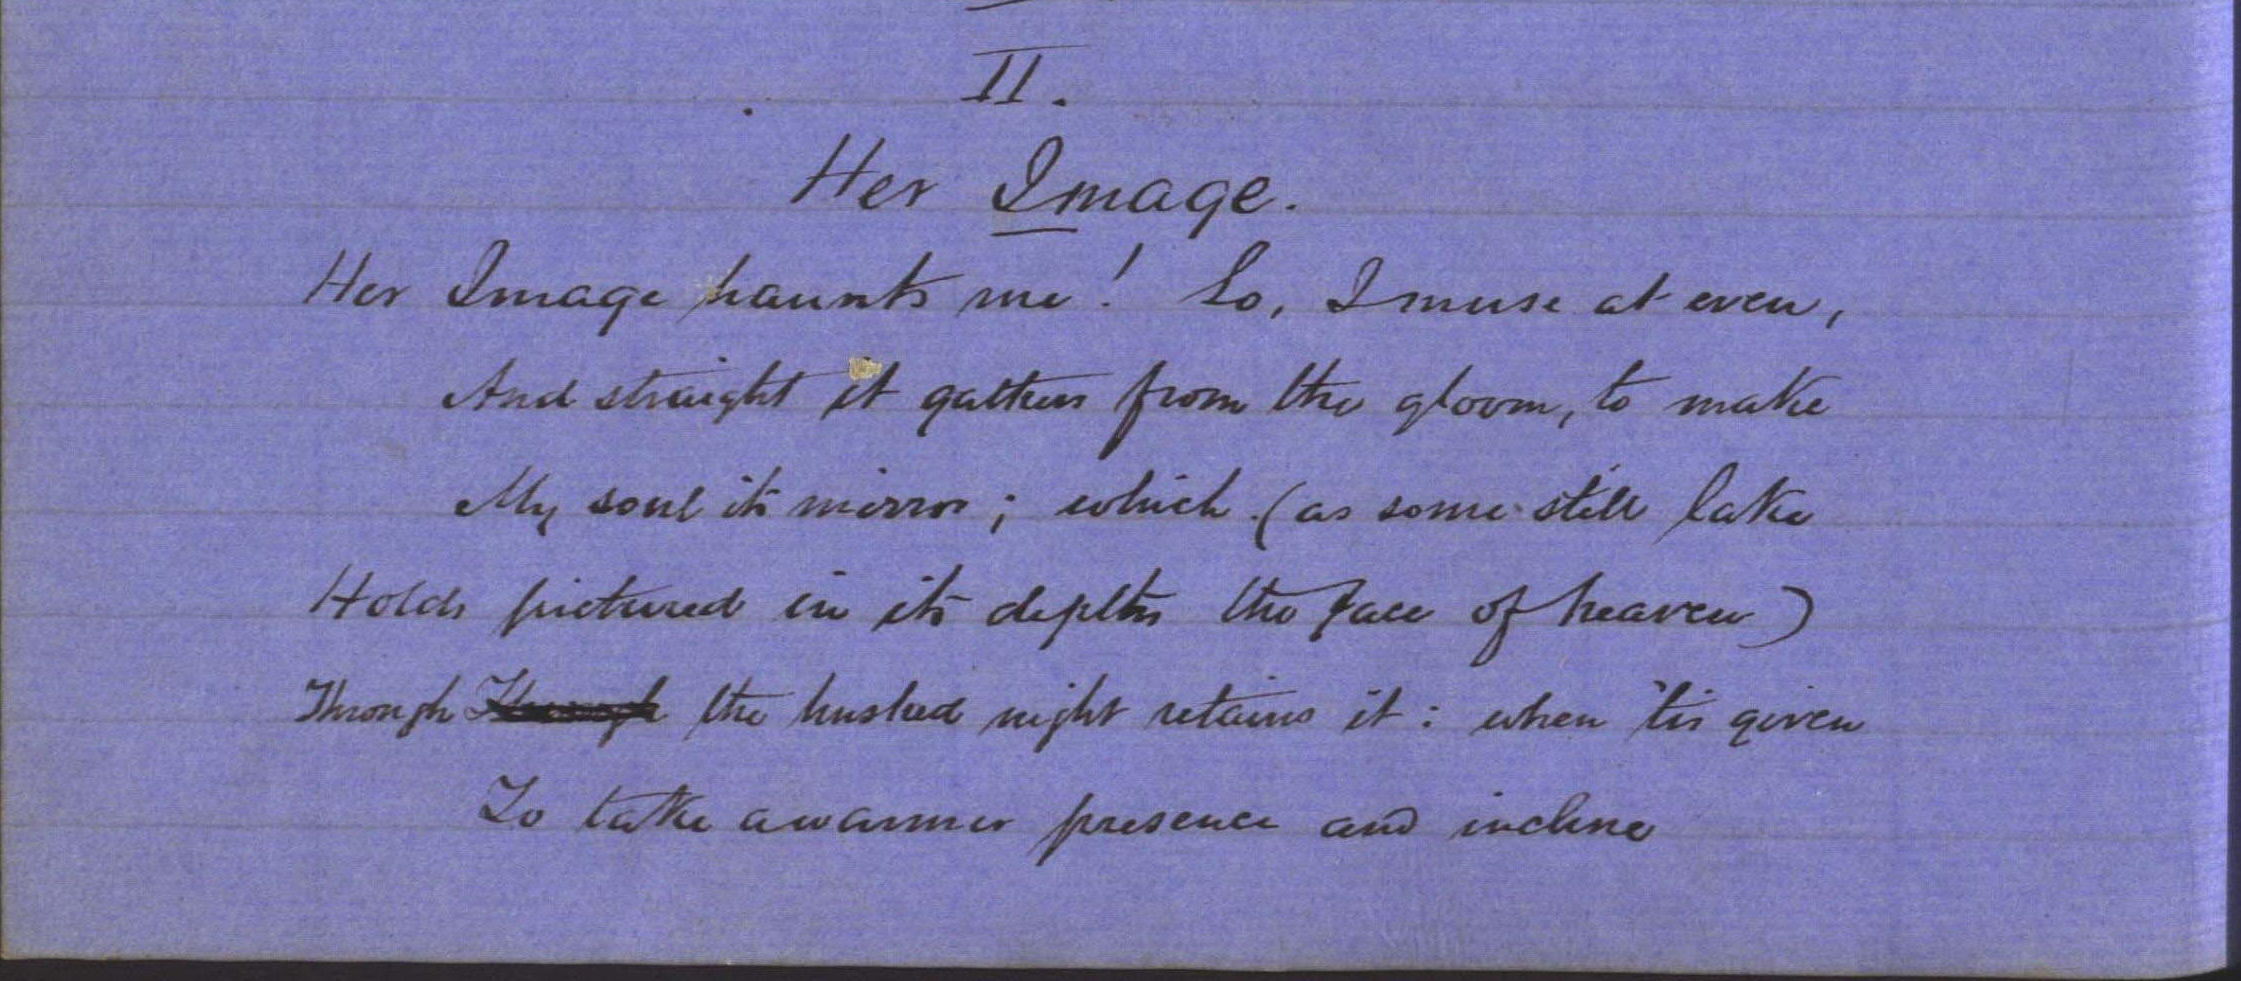 II.
Her Image.
Her Image haunts me! Lo, I muse at even,
And straight it gathers from the gloom, to make
My soul its mirror; which (as some still lake
Holds pictured in its depths the face of heaven)
Through Through the hushed night retains it: when 'tis given
To take a warmer presence and incline